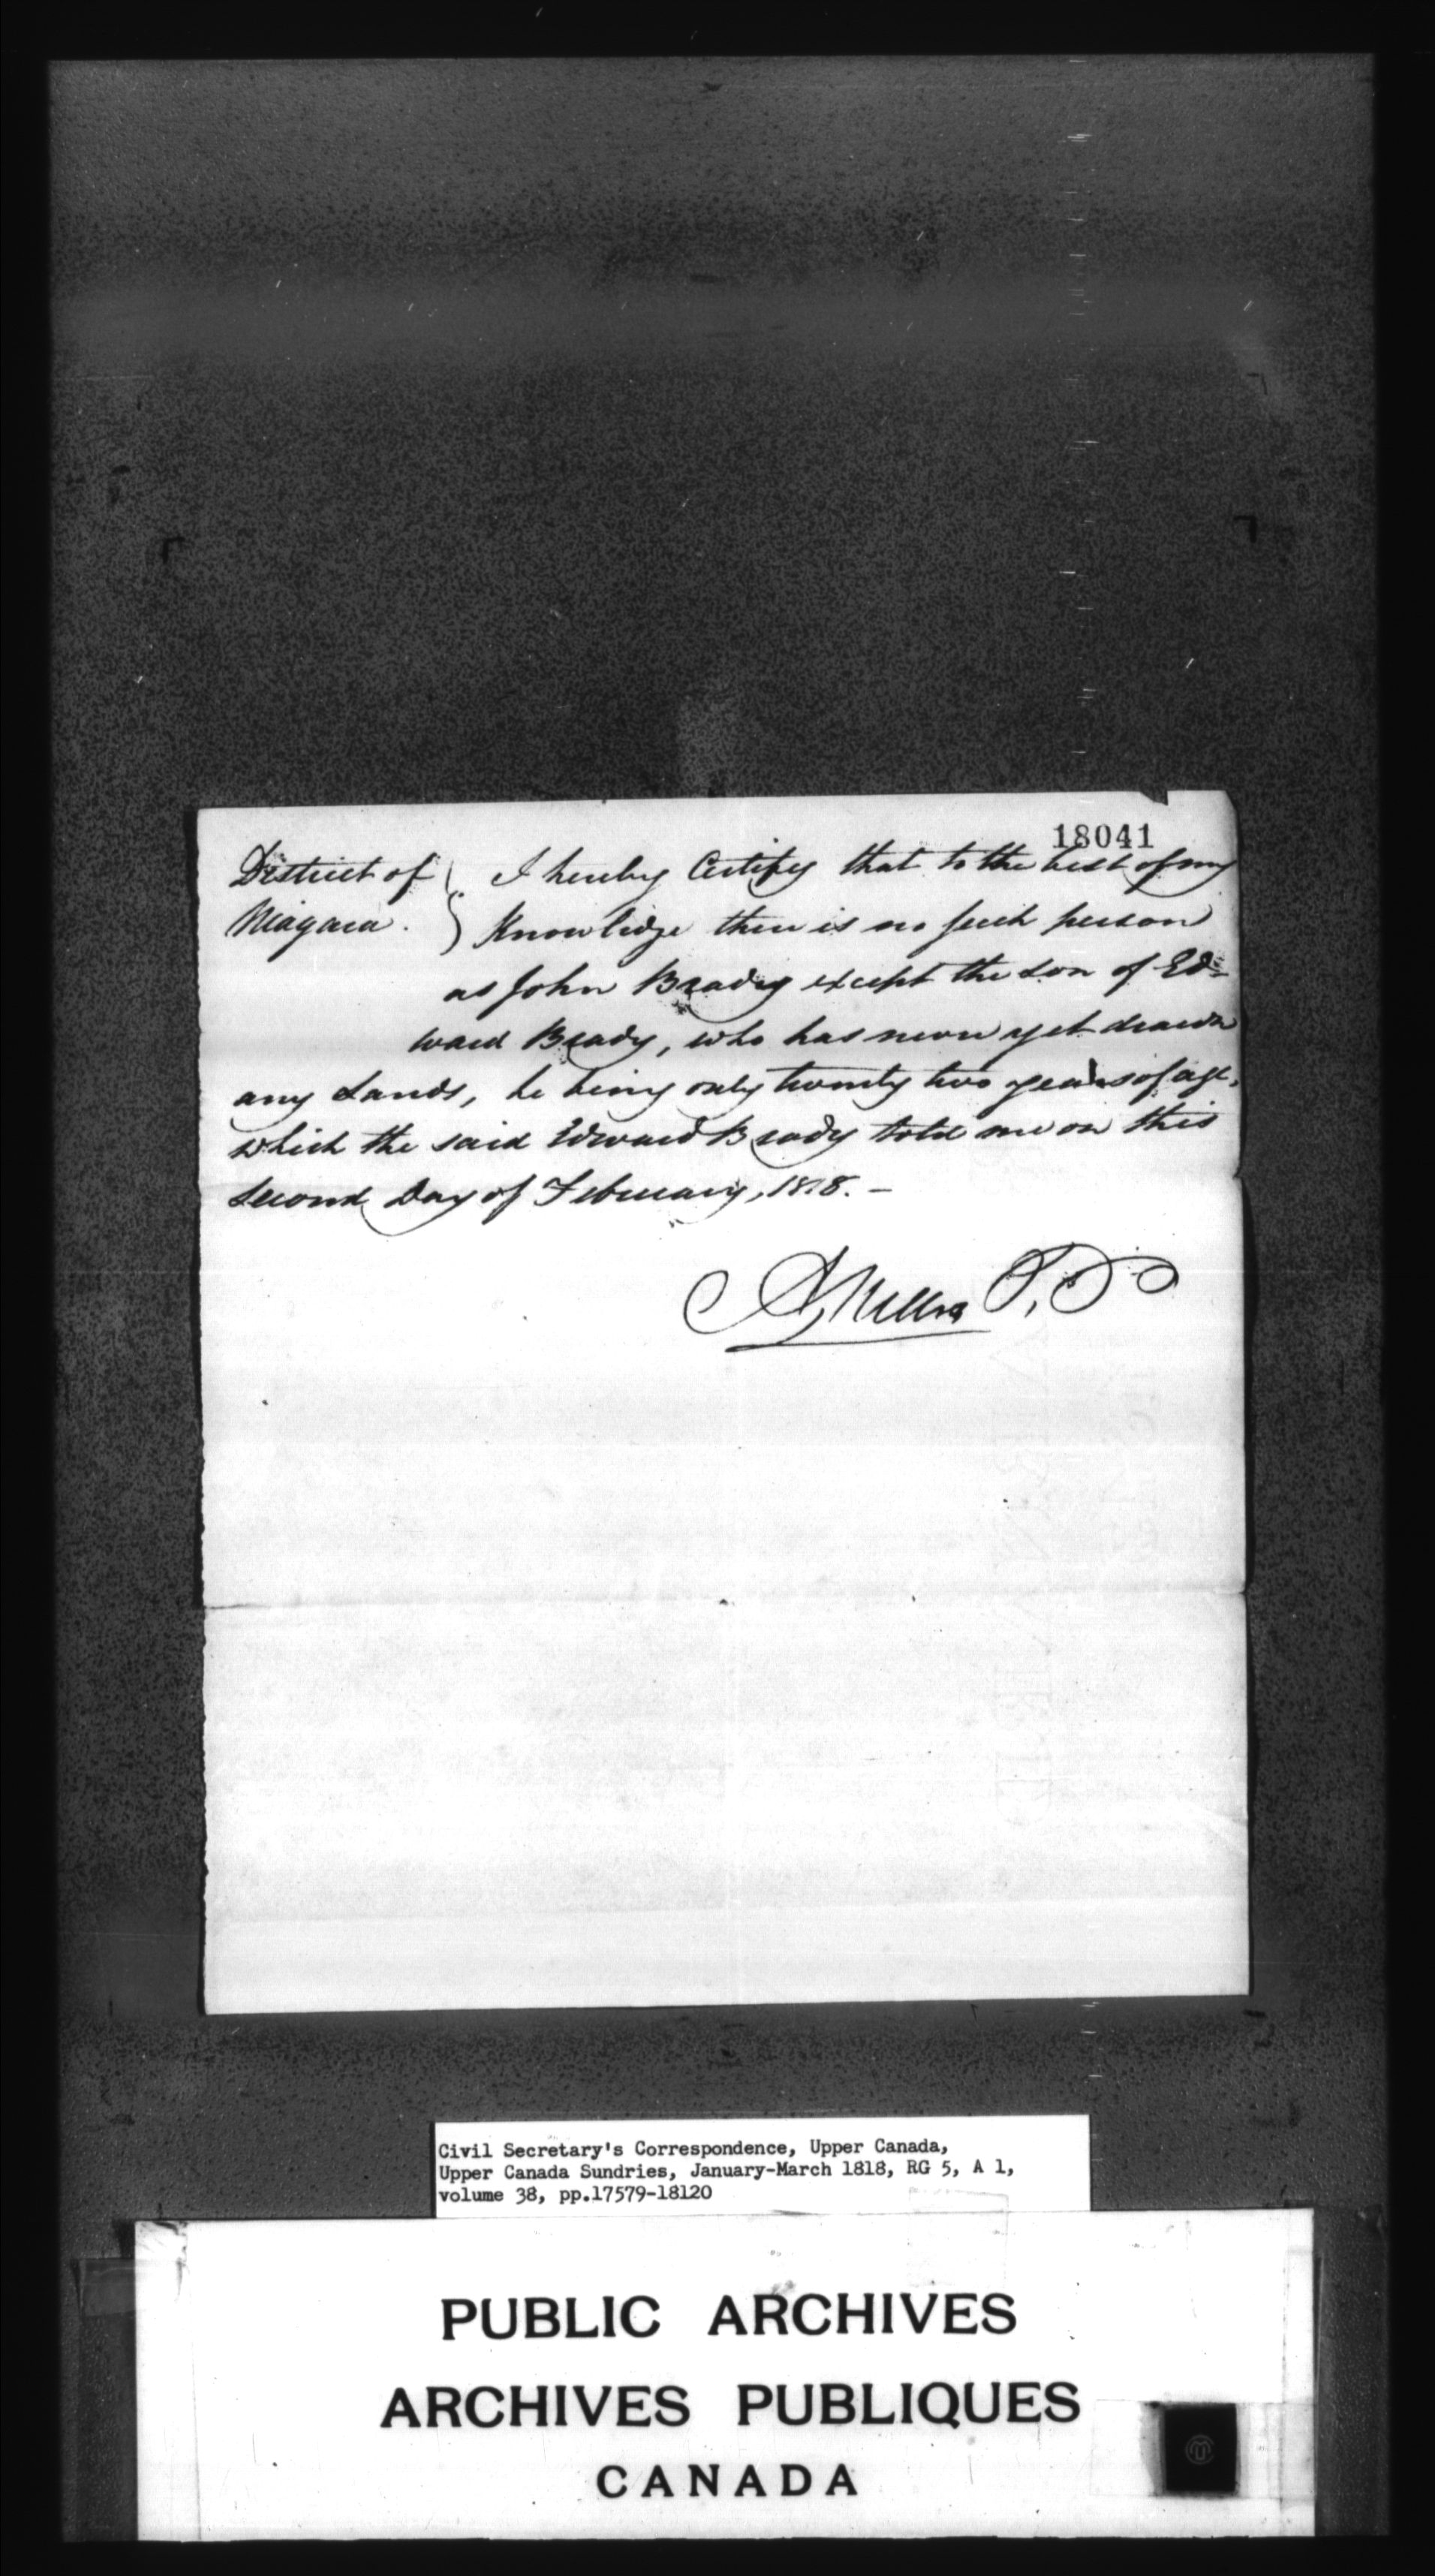 18041
District of } I hereby Certify that to the best of my
Niagara. } Knowledge there is no such person
as John Brady except the son of Ed=
ward Brady, who has never yet drawn
any Lands, he being only twenty two years of age,
which the said Edward Brady told me on this
second Day of February, 1818. –
Civil Secretary's Correspondence, Upper Canada,
Upper Canada Sundries, January-March 1818, RG 5, A 1,
volume 38, pp.17579-18120
PUBLIC ARCHIVES
ARCHIVES PUBLIQUES
CANADA